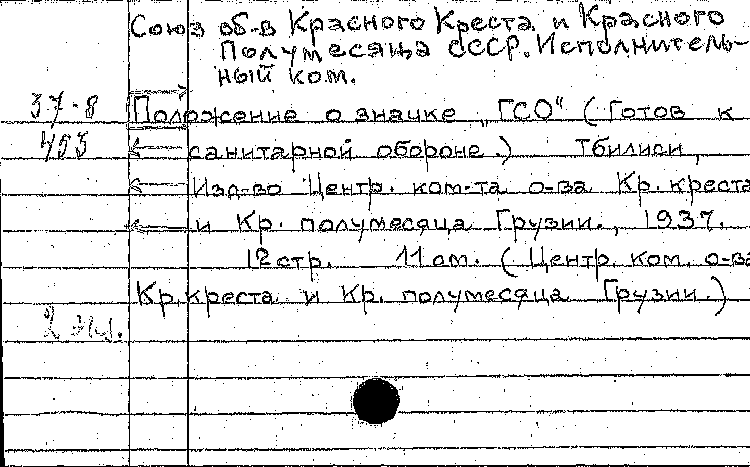 Союз об-в Красного Креста и Красного
Полумесяца СССР. Исполнитель-
ный ком.
37-8 Положение о значке „ГСО" (Готов к
453 санитарной обороне.) Тбилиси,
Изд-во Центр. ком-та о-ва Кр. креста
и Кр. полумесяца Грузии., 1937.
12 стр. 11 см. (Центр. ком. о-ва
Кр. креста и Кр. полумесяца Грузии.)
2 экз.